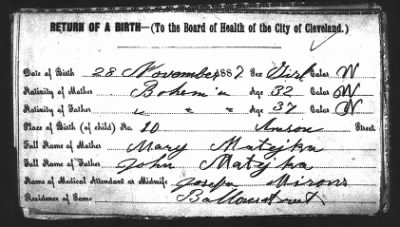 RETURN OF A BIRTH—(To the Board of Health of the City of Cleveland.)
Date of Birth 28 November 1887 Sex Girl Color W
Nativity of Mother Bohemia Age 32 Color W
Nativity of Father " " " Age 37 Color W
Place of Birth (of child) No. 10 Anson Street
Full Name of Mother Mary Matejka
Full Name of Father John Matejka
Name of Medical Attendant or Midwife, Josefa
Residence of Same